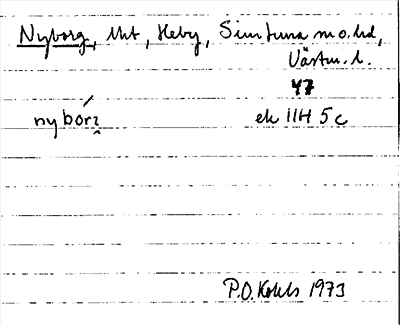 Nyborg, Uht, Heby, Simtuna m o. hd,
Västm. l.
47
nybórz̭ ek 11H 5c
P.O. Kohls 1973